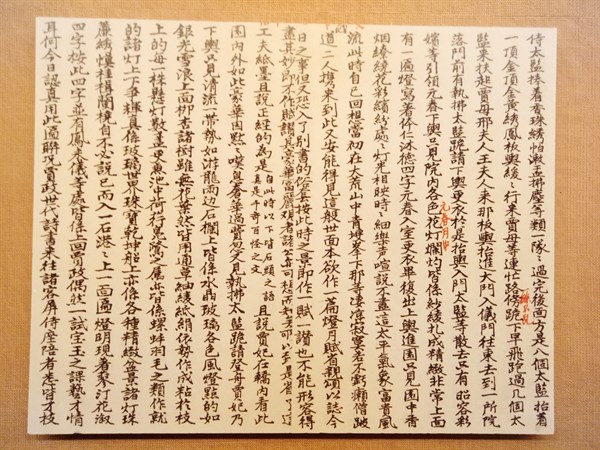 侍太監捧着香珠綉帕漱盂拂塵等類一隊〻過完後面方是八個太監抬着
一頂金頂金黃綉鳳板輿緩〻行來賈母等連忙路傍跪下早飛跑過几個太
監來扶起賈母邢夫人王夫人來那板輿抬進大門入儀門往東去到一所院
落門前有執拂太監跪請下輿更衣於是抬輿入門太監等散去只有 昭容彩
嬪等引領元春下輿只見院內各色花灯爛灼皆係紗綾扎成精緻非常上面
有一匾燈寫着体仁沐德四字元春入室更衣畢復出上輿進園只見園中香
烟繚繞花彩繽紛處〻灯光相映時〻細樂聲喧說不盡這太平氣象富貴風
流此時自己回想當初在大荒山中青埂峯下那等凄凉寂寞若不虧癩僧跛
道二人携來到此又安能得見這般世面本欲作一篇燈月賦省親頌以誌今
日之事但又恐入了別書的俗套按此時之景即作一賦一讚也不能形容得
盡其妙即不作賦讚其豪華富麗觀者諸公亦可想而知矣所以到是省了這
工夫紙墨且說正經的為是 自此時以下皆石頭之語 真是千奇百怪之文 且說賈妃在轎內看此
園內外如此豪華因默〻嘆息奢華過費忽又見執拂太監跪請登舟賈妃乃
下輿只見清流一帶勢如游龍兩边石欄上皆係水晶玻璃各色風燈點的如
銀光雪浪上面柳杏諸樹雖無花葉然皆用通草紬綾紙絹依勢作成粘於枝
上的每一株懸灯數盞更兼池中荷荇鳧鷺之屬亦皆係螺蚌羽毛之類作就
的諸灯上下爭輝真係玻璃世界珠寶乾坤船上亦係各種精緻盆景諸灯珠
簾綉幙桂楫蘭橈自不必說已而入一石港〻上一面匾燈明現着蓼汀花溆
字按此四字並有鳳來儀等處皆係上回賈政偶然一試寶玉之課藝才情
耳何今日認真用此匾聯况賈政世代詩書來往諸客屏侍座陪者悉皆才技